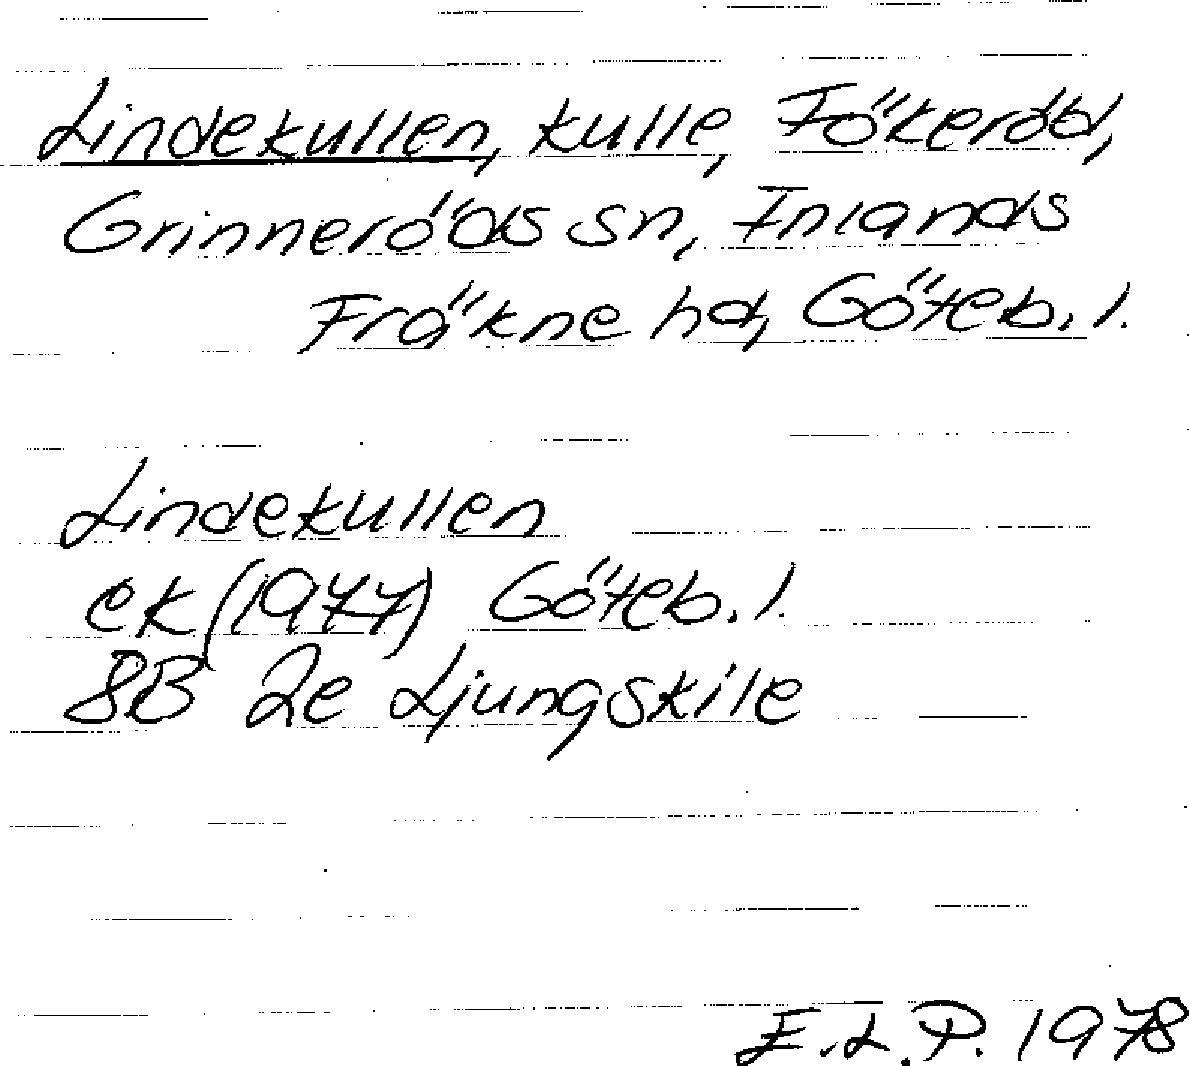 Lindekullen, kulle, Fökeröd,
Grinneröds sn, Inlands
Fräkne hd, Göteb. l.
Lindekullen
ek (1977) Göteb. l.
8B 2e Ljungskile
E.L.P. 1978